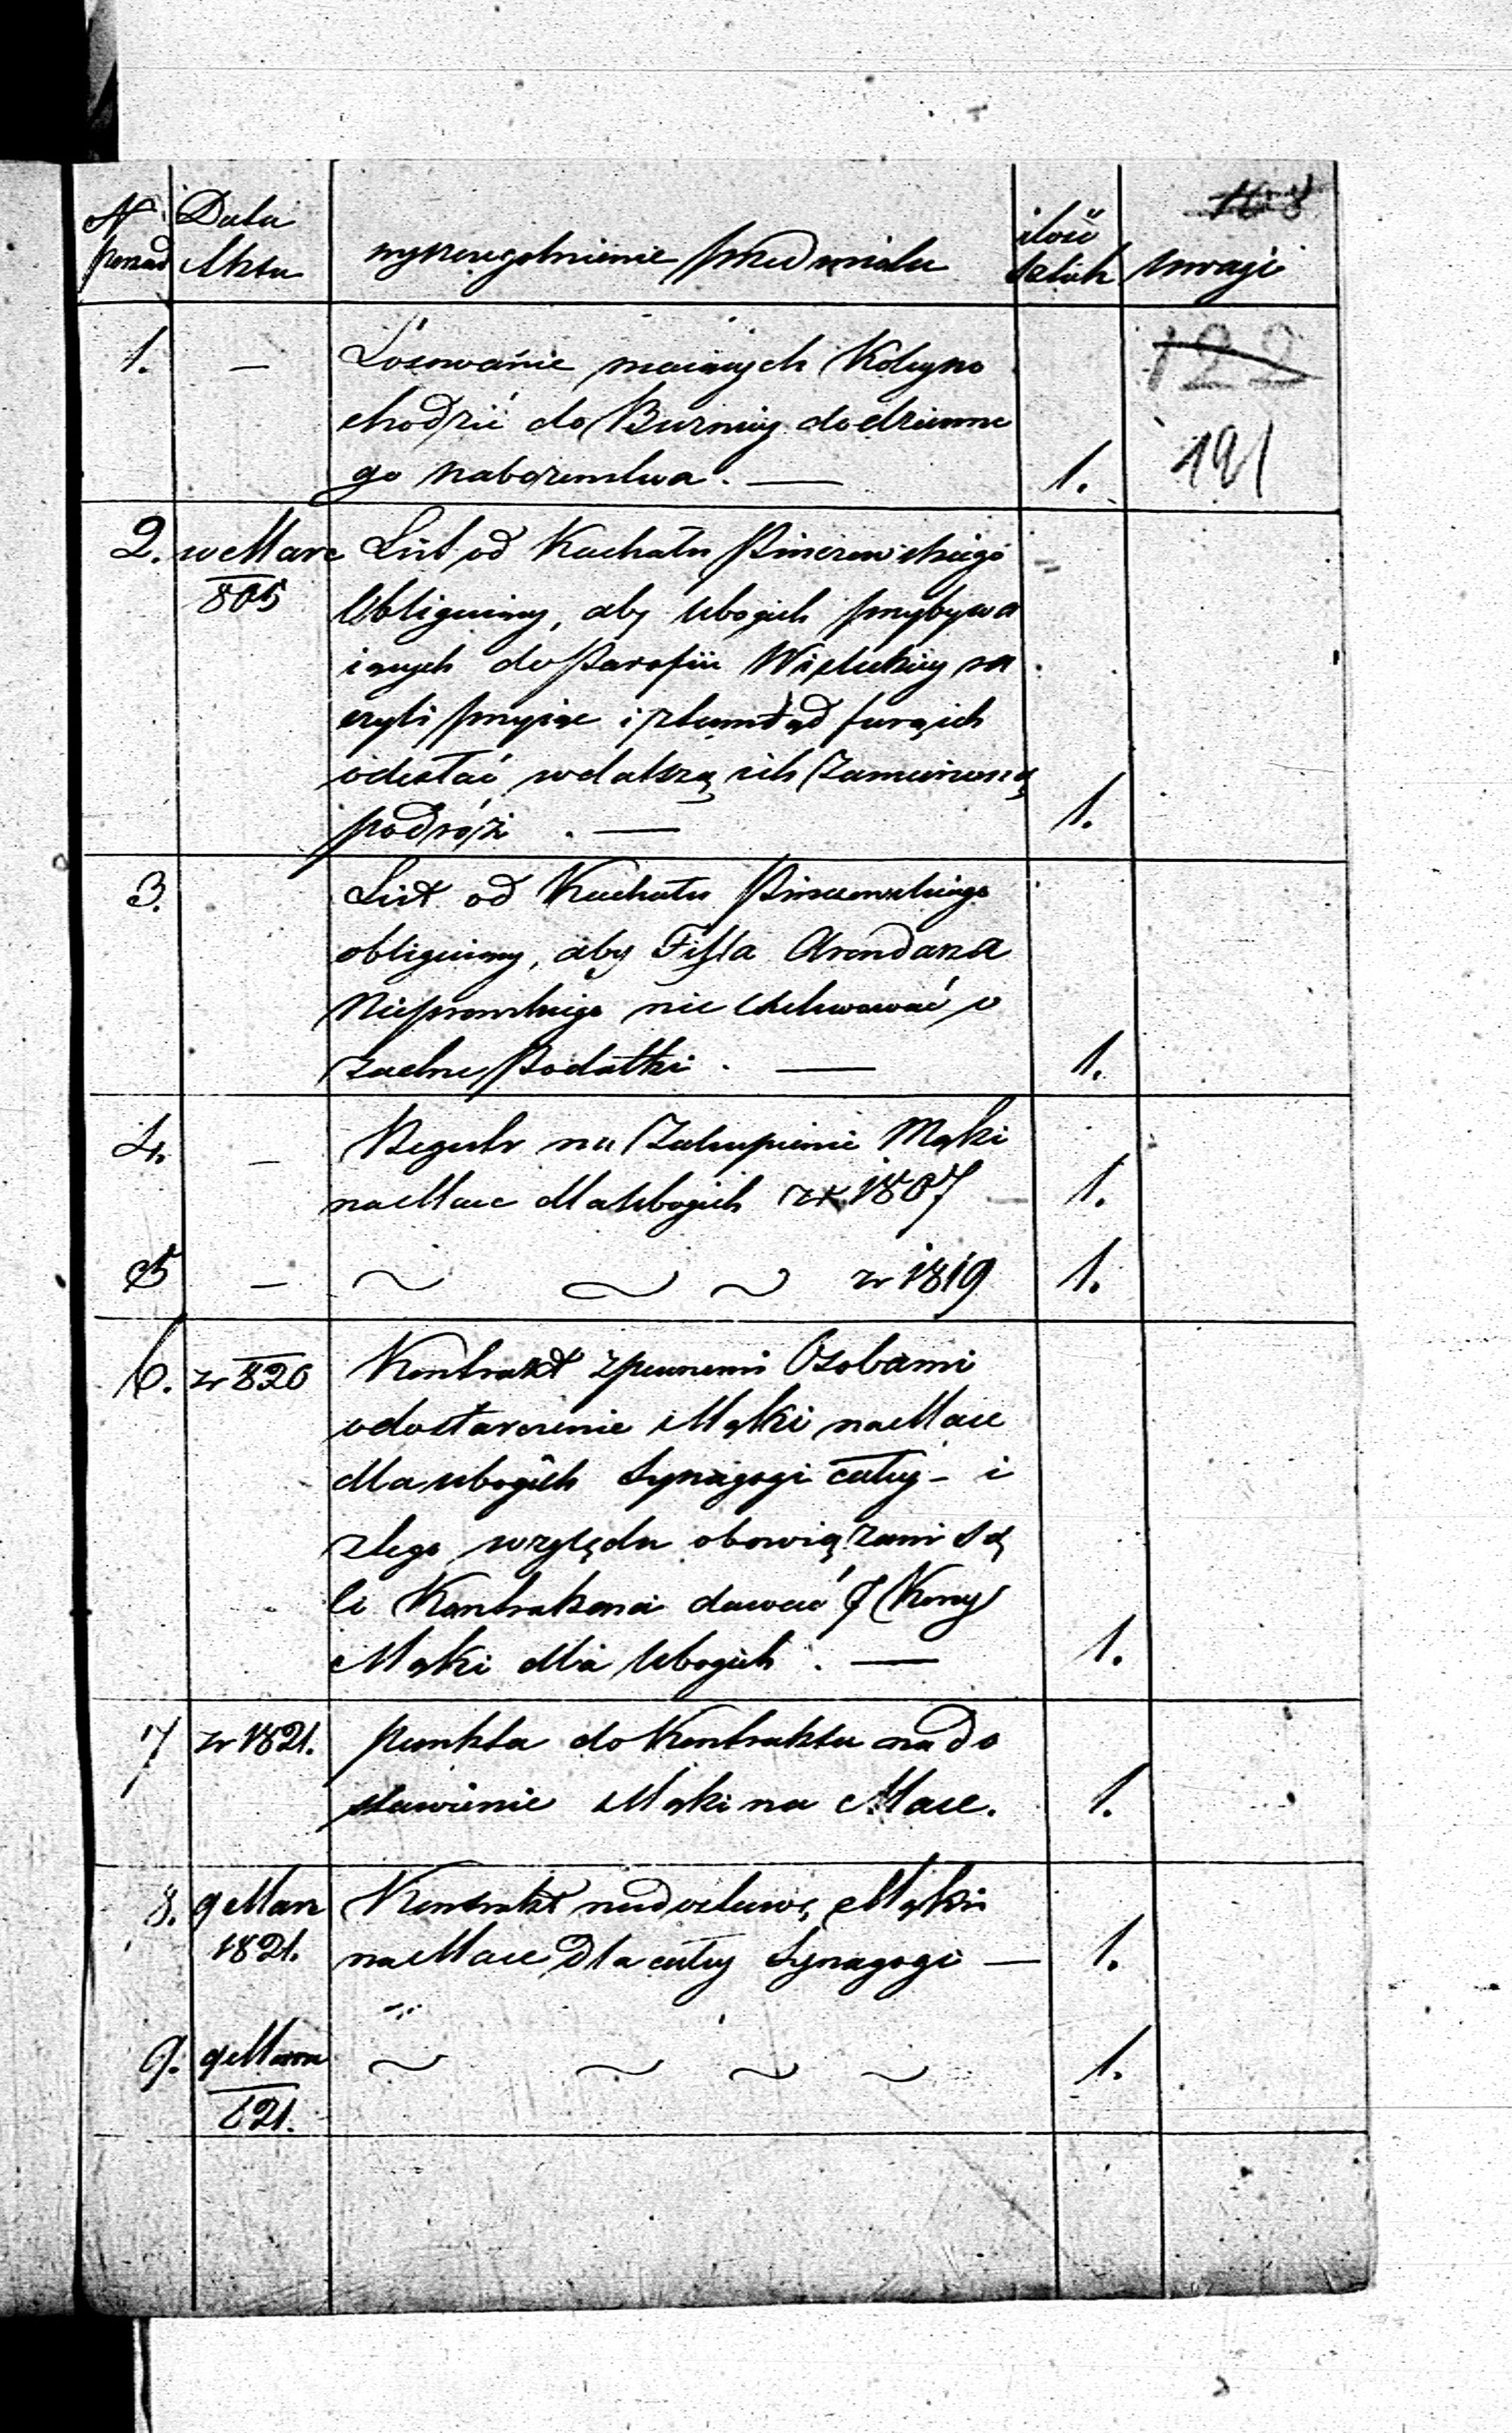 N Data wyszczególnienie przedmiotu ilość uwagi
porząd Aktu sztuk
1. — Losowanie maiących Koleyno 122
chodzić do Burnicy do dzienne
go nabożenstwa. — 1. 121
2. w Marc List od Kachału Pinczowskiego
805 obliguiący, aby Ubogich przybywa
iących do Parafii Wiślickiey ra
czyli przyiąc i ztamtąd furą ich
odesłać w dalszą ich zamierzoną
podróż. — 1.
3. List od Kachału Pinczowskiego
obliguiący, aby Fisla Arendarza
Nieprowskiego nie exekwować o
żadne Podatki. — 1.
4. — Regestr na Zakupienie Mąki
na Mace dla Ubogich z r. 1807 — 1.
5 — ~ ~ ~ z r 1819 1.
6. z r 820 Kontrakt z pewnemi Osobami
o dostarczenie Mąki na Mace
dla ubogich Synagogi całey — i
z tego względu obowiązani są
ci Kontrahenci dawać 7 Korcy
Mąki dla Ubogich. — 1.
7 z r 1821. punkta do Kontraktu na do
stawienie Mąki na Mace. 1.
8. 9 Marc Kontrakt na dostawę Mąki
1821. na Mace Dla całey Synagogi — 1.
9. 9 Marca ~ ~ ~ ~ 1.
821.